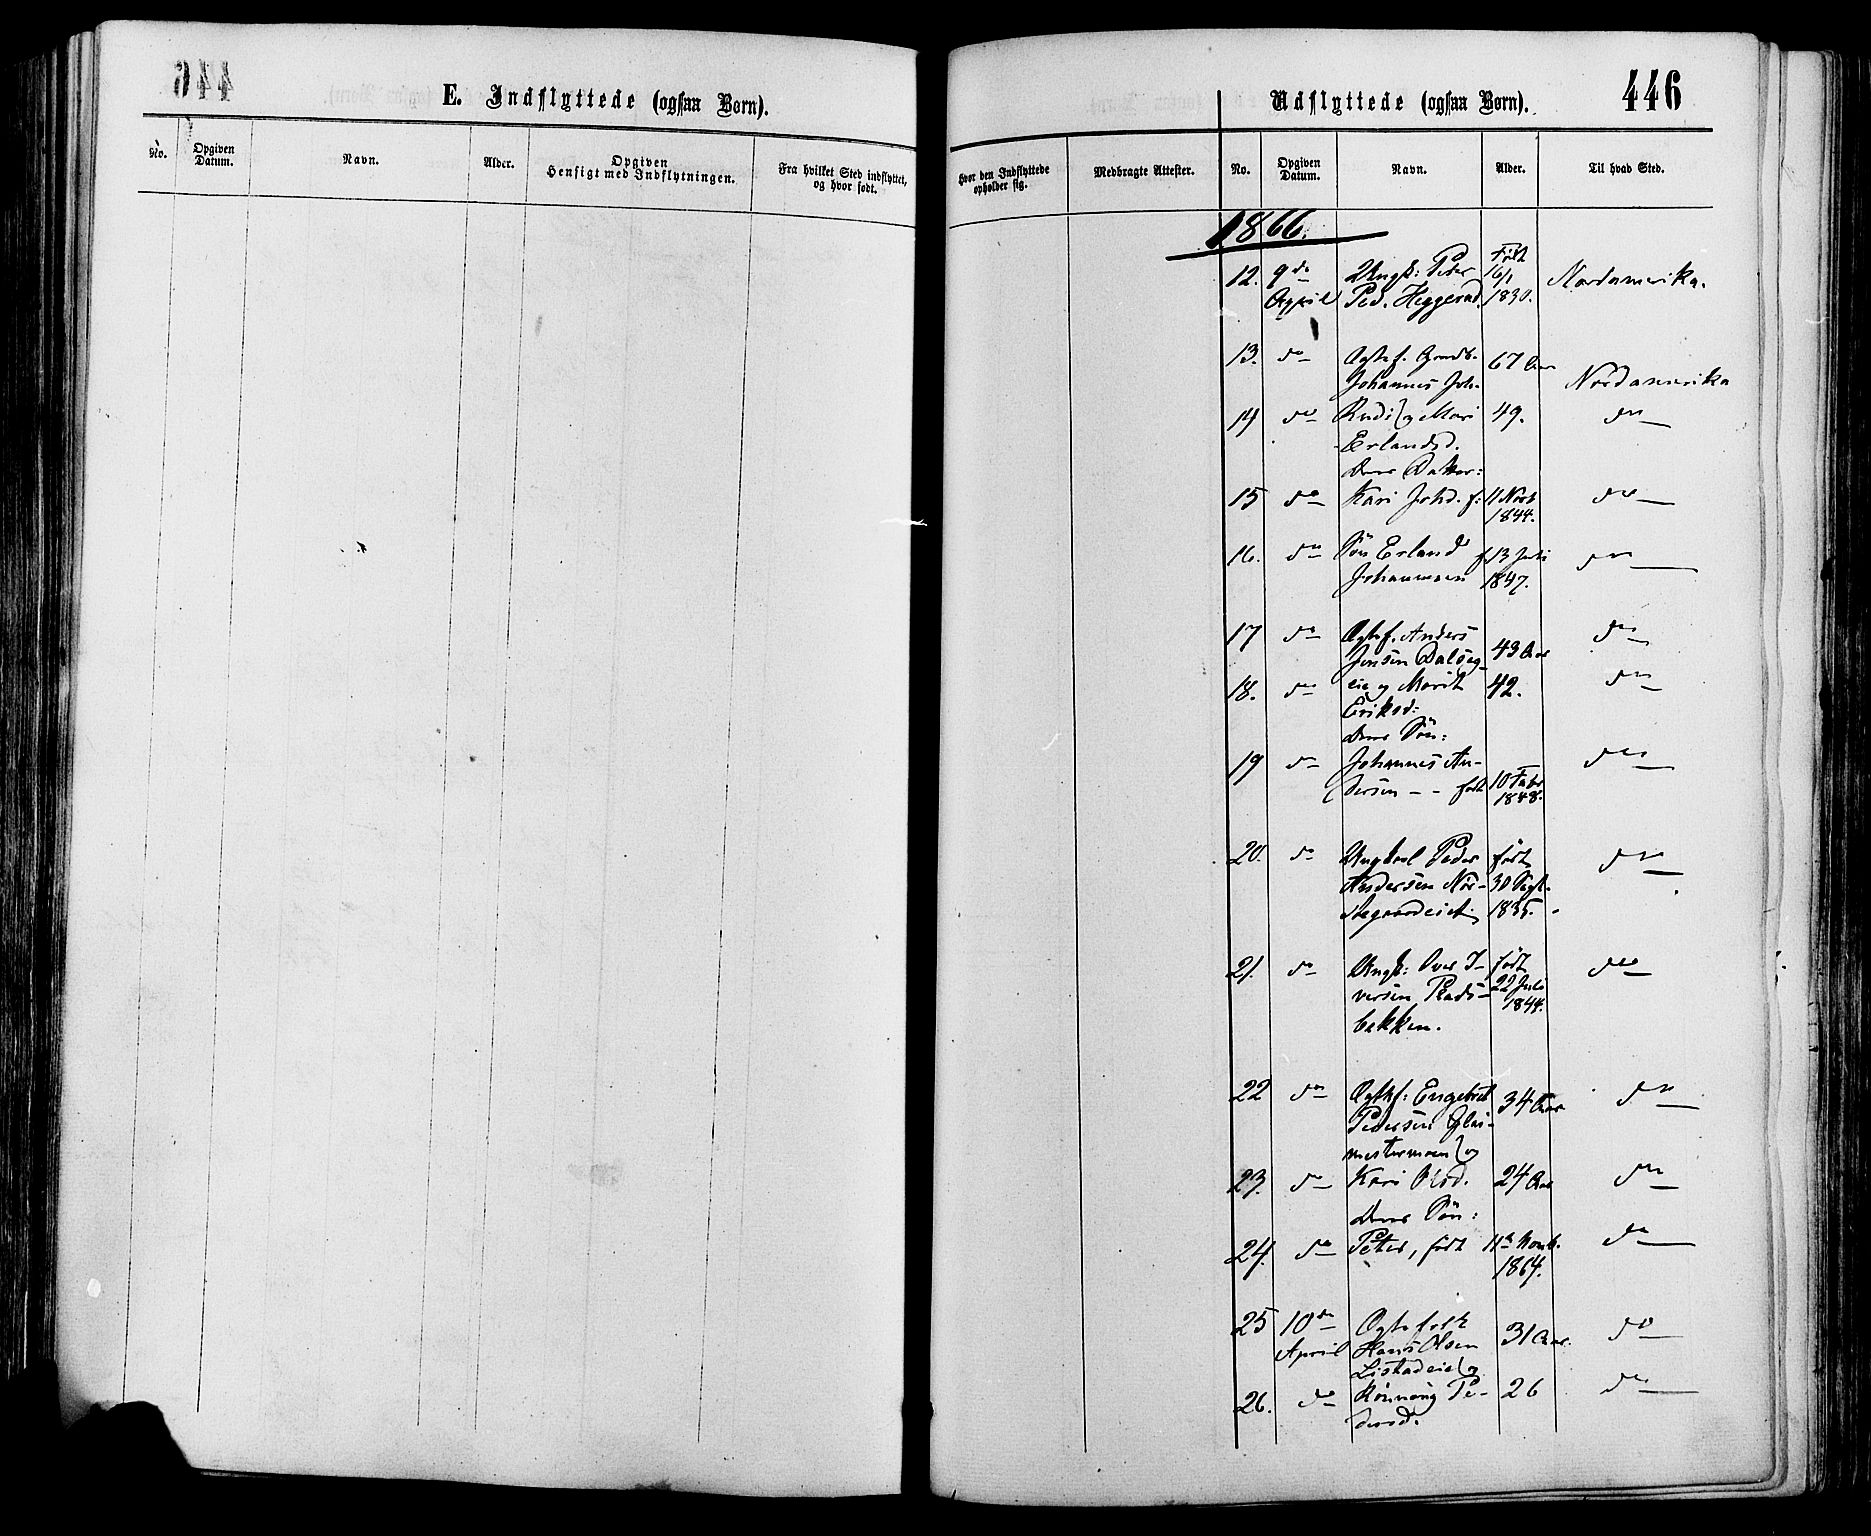 446
E. Indflyttede (ogsaa Børn).
No.
Opgiven
Datum.
Navn.
Alder.
Opgiven
Hensigt med Indflytningen.
Fra hvilket Sted indflyttet,
og hvor født.
Udflyttede (ogsaa Børn).
446
Hvor den Indflyttede
opholder sig.
Medbragte Attester.
No.
Opgiven
Datum.
Navn.
Alder.
Til hvad Sted.
1866.
12. 9de Ungk: Peder Født 16/1 Nordamerika.
April Ped. Heggerud 1830.
13. do Ægtef. 67 Aar
Johannes Joh. Nordamerika
14 do Rudi og Mari 49. do
Erlandsd.
deres Datter:
15 do Kari Johd. f: 11 Novb do
1844.
16. do Søn Erland f. 13 Juli do
Johannesen 1847.
17 do Ægtef. Anders do
Jensen Dalseg- 43 Aar
18. do eie og Marit 42. do
Eriksd:
deres Søn:
19 do Johannes An- do
dersen - - født 10 Febr
1848.
20. do Ungkarl Peder født do
Andersen Nor- 30 Sept.
stegaardeiet 1835.
21. do Ungk: Over I- født do
versen Plads- 22 Juli
bakken. 1844.
22 do Ægtef: Engebret 34 Aar do
Pedersen Glas-
mestermoen og
23. do Kari Olsd. 24 Aar do
deres Søn:
24. do Peter, født 11te Novb. do
1864.
25 10de Ægtefolk 31 Aar. do
April Hans Olsen
Listadeie og
26. do Rønnoug Pe- 26 do
dersd.